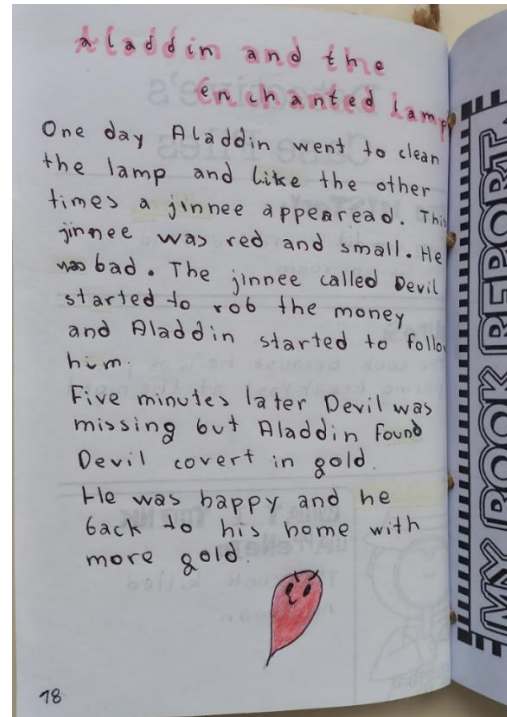 Aladdin and the
enchanted lamp
One day Aladdin went to clean
the lamp and like the other
times a jinnee appearead. This
jinnee was red and small. He
was bad. The jinnee called Devil
started to rob the money
and Aladdin started to follo
him.
Five minutes later Devil was
missing but Aladdin found
Devil covert in gold.
He was happy and he
back to his home with
more gold.
18
MY BOOK REPORT